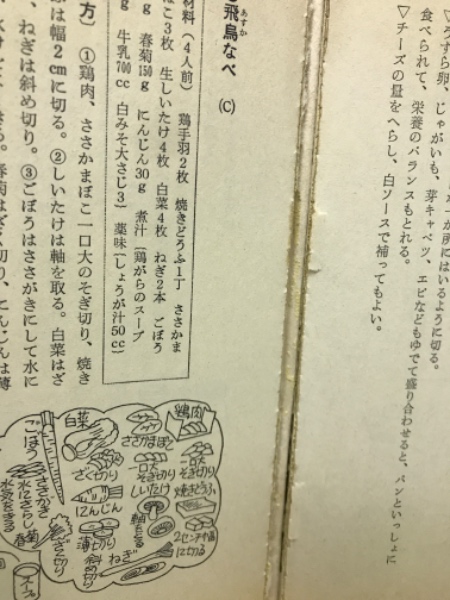 ▽うずら卵、じゃがいも、芽キャベツ、エビなどもゆでて盛り合わせると、パンといっしょに
食べられて、栄養のバランスもとれる。
▽チーズの量をへらし、白ソースで補ってもよい。
所にはいるように切る。
飛鳥なべ (C)
あすか
材料(4人前) 鶏手羽2枚 焼きどうふ1丁 ささかま
ぼこ3枚 生しいたけ4枚 白菜4枚 ねぎ2本 ごぼう
g 春菊150g にんじん30g 煮汁〔鶏がらのスープ
g 牛乳700cc 白みそ大さじ3〕 薬味〔しょうが汁50cc〕
方) ①鶏肉、ささかまぼこ一口大のそぎ切り、焼き
は幅2cmに切る。②しいたけは軸を取る。白菜はざ
、ねぎは斜め切り。③ごぼうはささがきにして水に
春菊はざく切り、にんじんは薄
鶏肉
一口大
そぎ切り
焼きどうふ
2センチの幅
に切る
ささかまぼこ
一口大
そぎ切り
しいたけ
軸をとる
白菜
ざく切り
にんじん
薄切り
ねぎ
斜め切り
ごぼう
ささがき
水にさらし
水気をきる
春菊
ざく切り
スープ